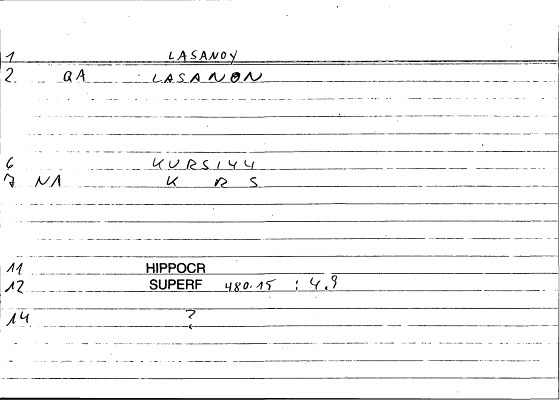 1 LASANOY
2 QA LASANON
6 KURSI44
7 NA K R S
11 HIPPOCR
12 SUPERF 480.15 : 4.9
14 ?